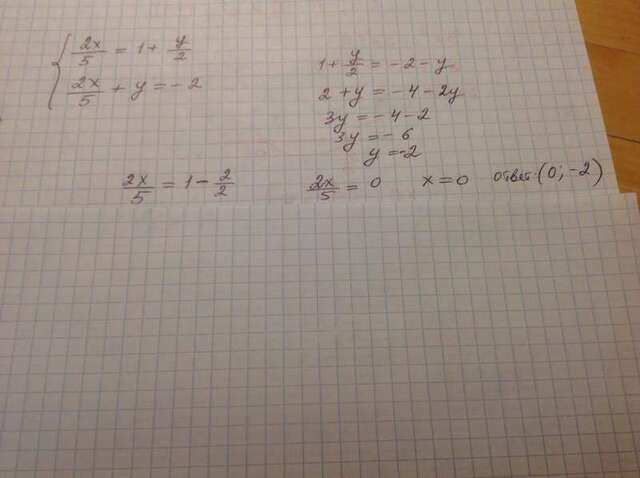 2x/5 = 1 + y/2
2x/5 + y = -2
1 + y/2 = -2 - y
2 + y = -4 - 2y
3y = -4 - 2
3y = -6
y = -2
2x/5 = 1 - 2/2
2x/5 = 0 x = 0 ответ: (0; -2)